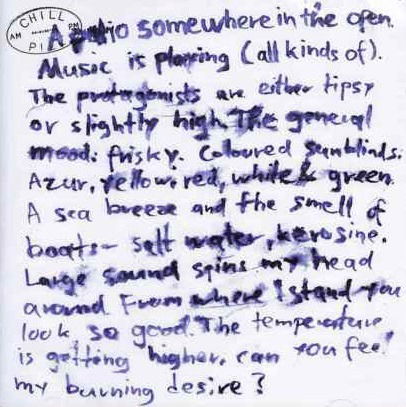 CHILL
AM PM
PILL
A patio somewhere in the open.
Music is playing (all kinds of).
The protagonists are either tipsy
or slightly high. The general
mood: frisky. Coloured sunblinds.
Azur, yellow, red, white & green.
A sea breeze and the smell of
boats - salt water, kerosine.
Large sound spins my head
around From where I stand you
look so good. The temperature
is getting higher, can you feel
my burning desire?